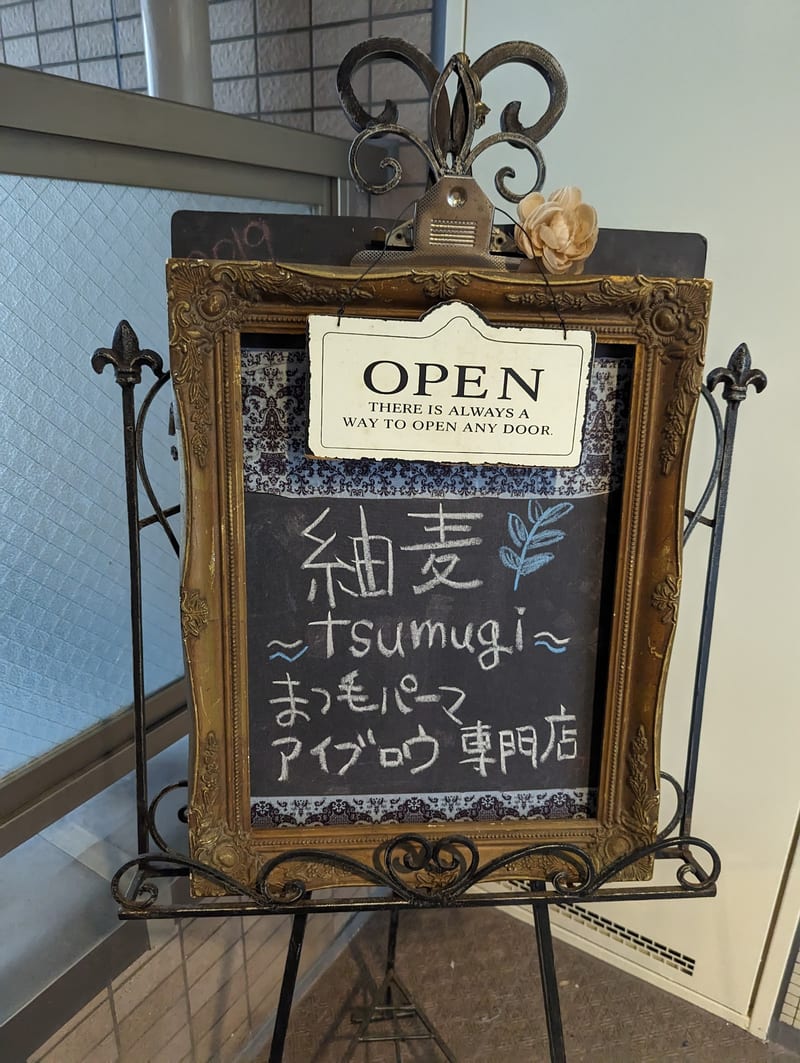 2019
OPEN
THERE IS ALWAYS A
WAY TO OPEN ANY DOOR.
紬麦
~tsumugi~
まつ毛パーマ
アイブロウ 専門店